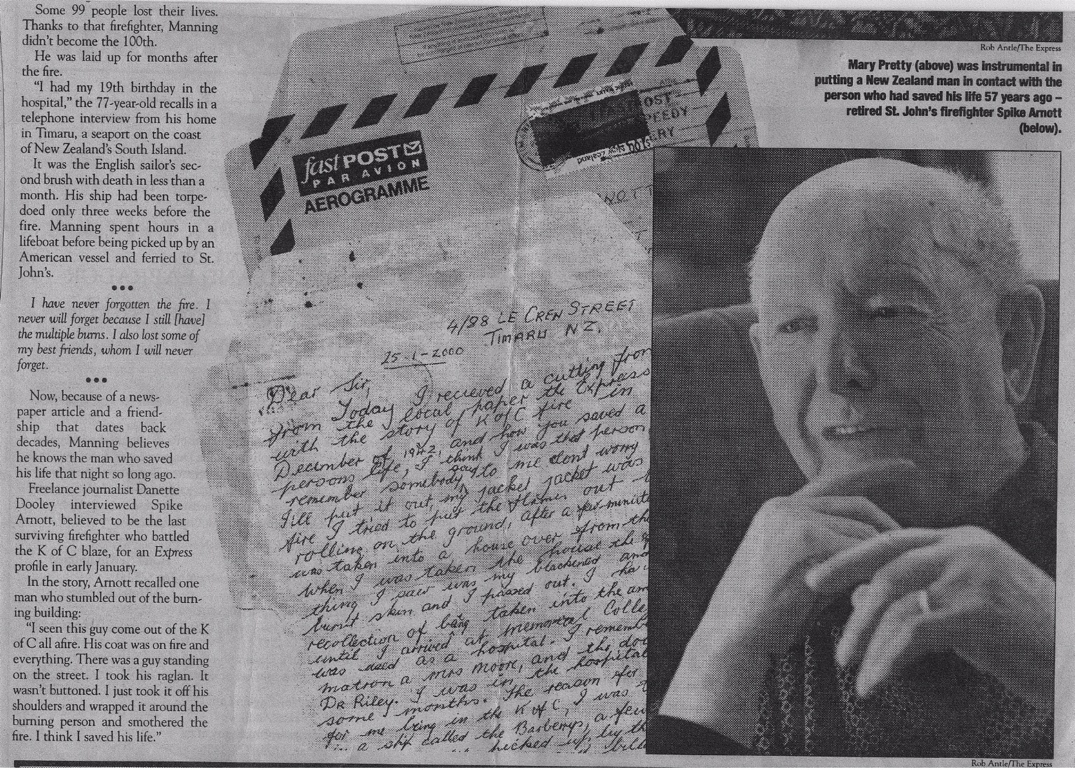 Some 99 people lost their lives.
Thanks to that firefighter, Manning
didn't become the 100th.
He was laid up for months after
the fire.
"I had my 19th birthday in the
hospital," the 77-year-old recalls in a
telephone interview from his home
in Timaru, a seaport on the coast
of New Zealand's South Island.
It was the English sailor's sec-
ond brush with death in less than a
month. His ship had been torpe-
doed only three weeks before the
fire. Manning spent hours in a
lifeboat before being picked up by an
American vessel and ferried to St.
John's.
•••
I have never forgotten the fire. I
never will forget because I still [have]
the multiple burns. I also lost some of
my best friends, whom I will never
forget.
•••
Now, because of a news-
paper article and a friend-
ship that dates back
decades, Manning believes
he knows the man who saved
his life that night so long ago.
Freelance journalist Danette
Dooley interviewed Spike
Arnott, believed to be the last
surviving firefighter who battled
the K of C blaze, for an Express
profile in early January.
In the story, Arnott recalled one
man who stumbled out of the burn-
ing building:
"I seen this guy come out of the K
of C all afire. His coat was on fire and
everything. There was a guy standing
on the street. I took his raglan. It
wasn't buttoned. I just took it off his
shoulders and wrapped it around the
burning person and smothered the
fire. I think I saved his life."
fast POST
PAR AVION
AEROGRAMME
FASTPOST
4/88 LE CREN STREET
TIMARU N.Z.
25-1-2000
Dear Sir,
Today I recieved a cutting from
from the local paper the Express
with the story of K of C fire in
December of 1942, and how you saved a
persons life, I think I was that person
remember somebody say to me dont worry
I'll put it out, my jacket jacket was
fire I tried to put the flames out
rolling on the ground, after a few minits
was taken into a house over from the
when I was taken the house the
thing I saw was my blackened and
burnt skin and I passed out. I ha
recollection of being taken into the am
until I arrived at memorial Colle
was used as a hospital. I rememb
matron a Mrs Moore, and the doc
Dr Riley. I was in the hospital
some months. The reason for
for me being in the K of C, I was
a ship called the Barberrys, a few
picked up by th
Rob Antle/The Express
Mary Pretty (above) was instrumental in
putting a New Zealand man in contact with the
person who had saved his life 57 years ago –
retired St. John's firefighter Spike Arnott
(below).
Rob Antle/The Express